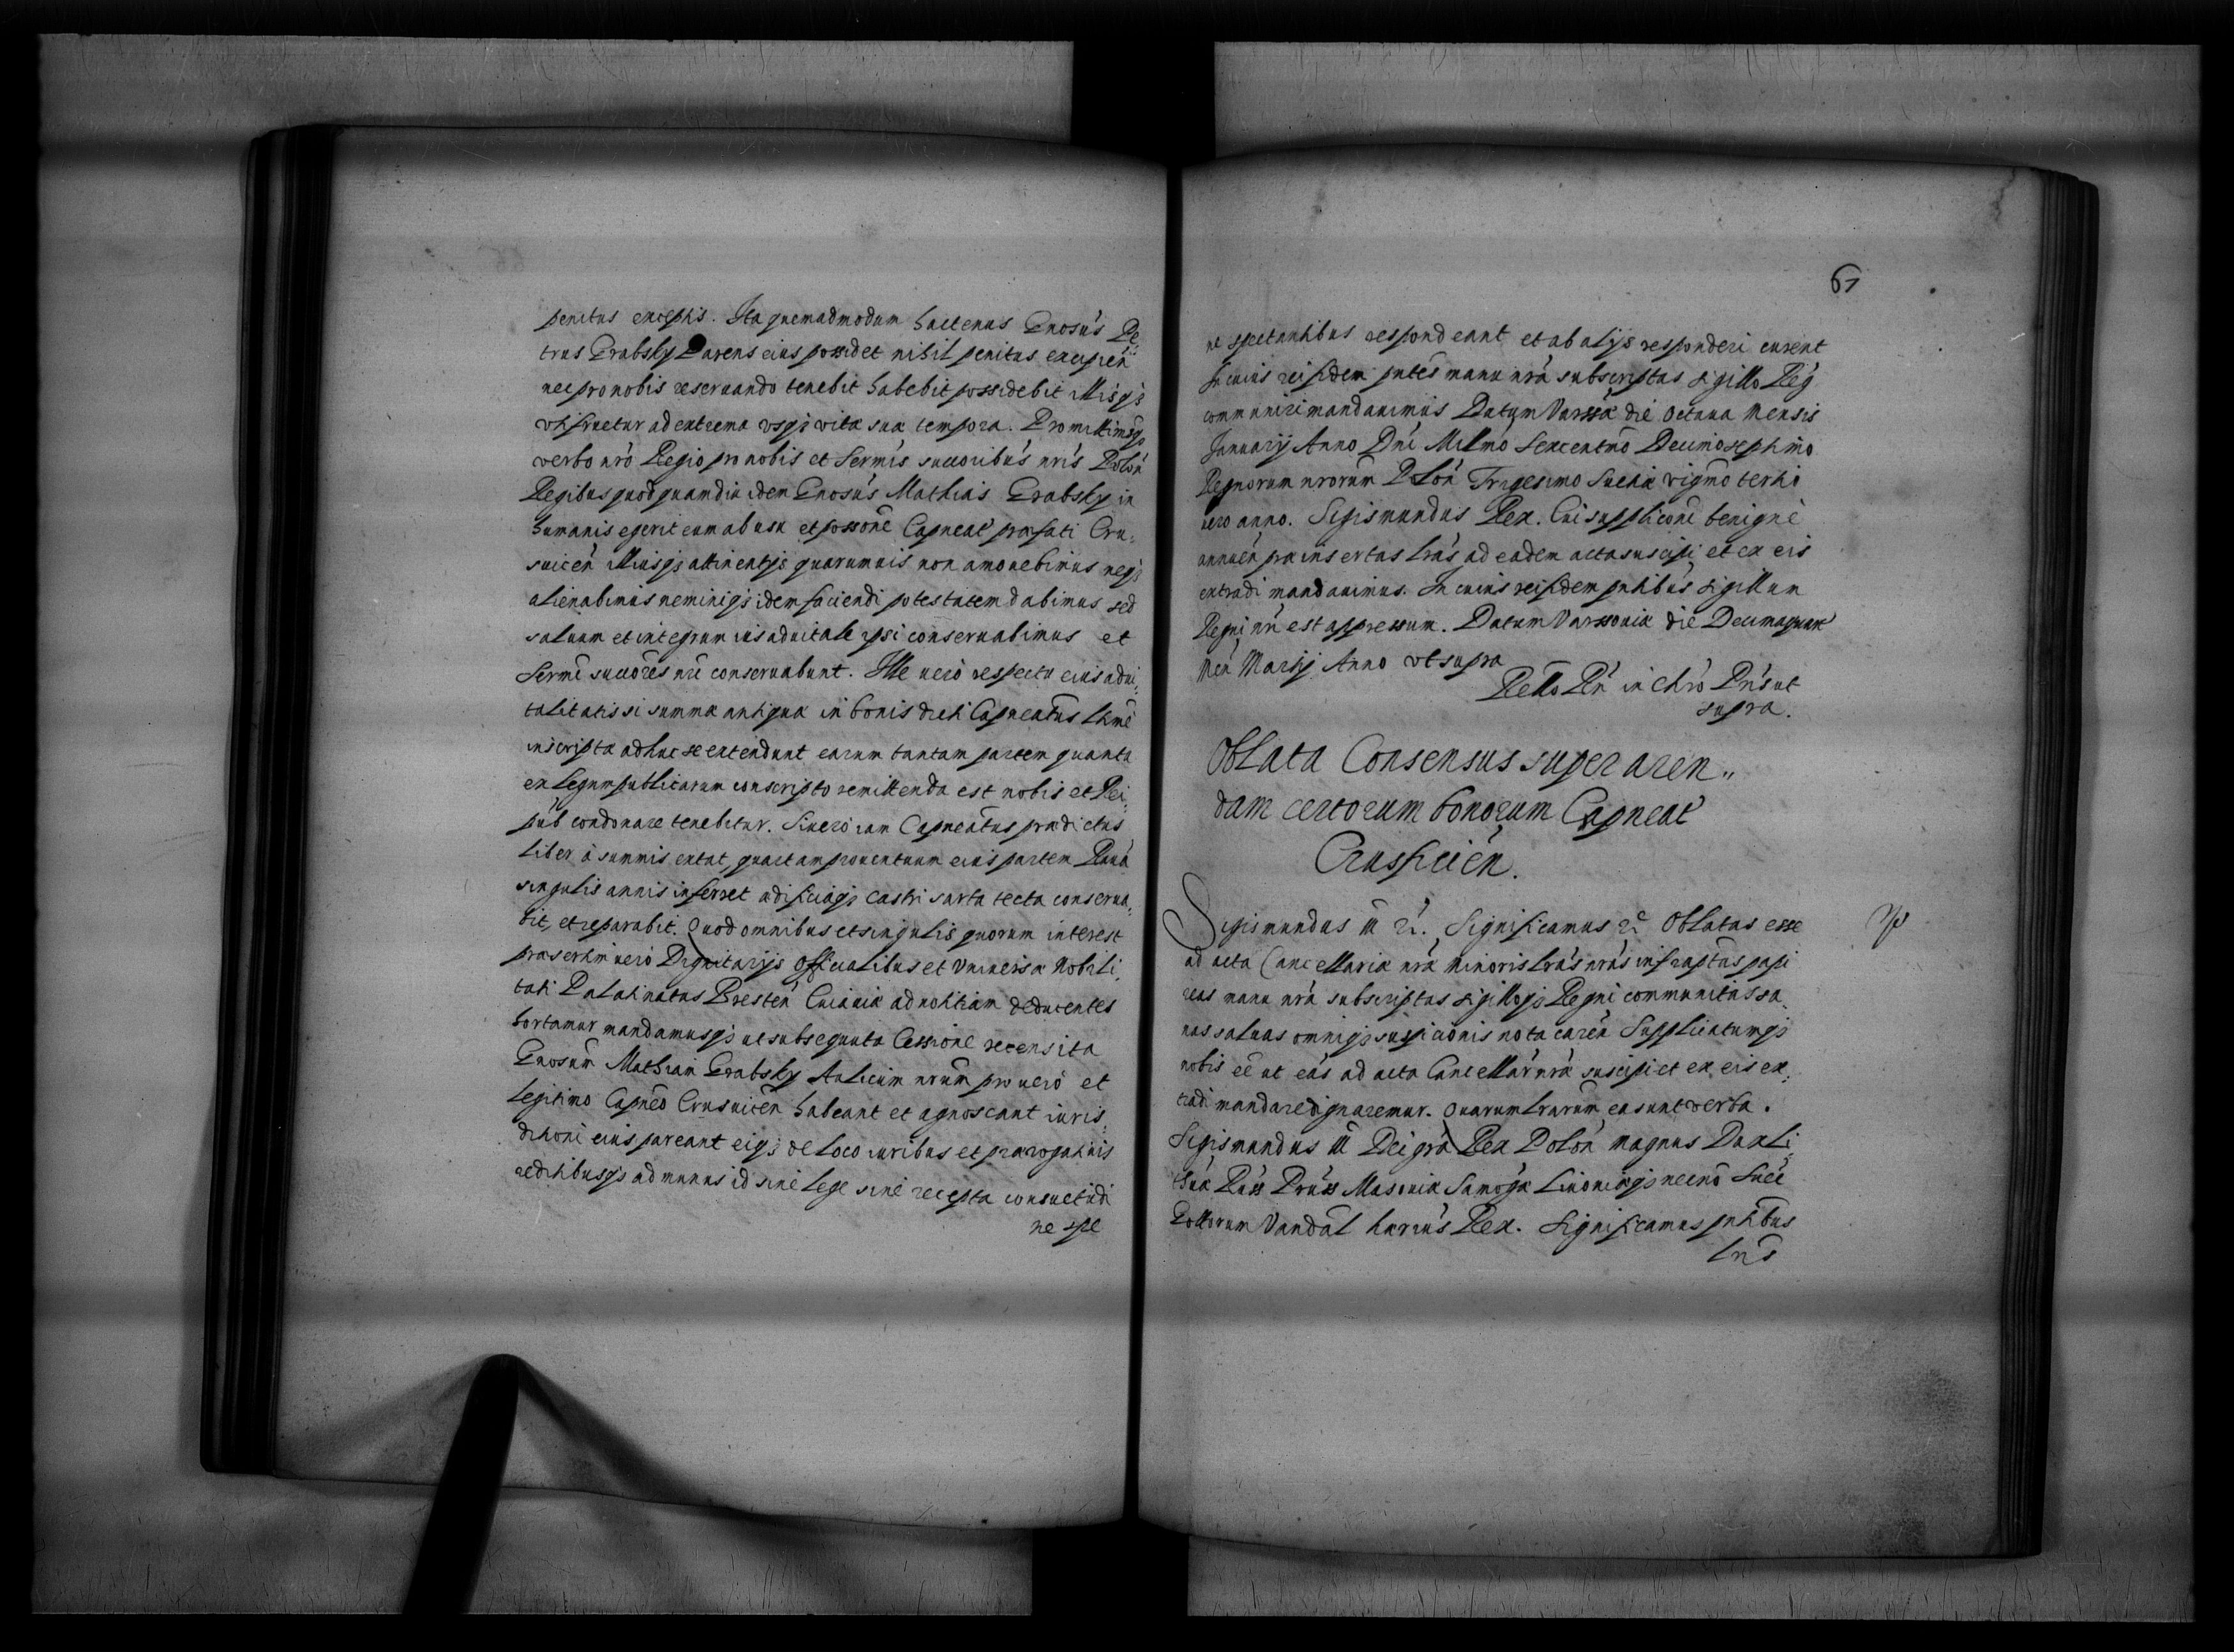 penitus exceptis. Ita quemadmodum hactenus Gnosus Pe,
trus Grabsky Parens eius possidet nihil penitus excipien
nec pro nobis reseruando tenebit habebit possidebit illisqз
vtifruetur ad extrema vsqз vitæ suæ tempora. Promittimusqз
verbo nrō Regio pro nobis et Sermis succoribus nris Polon
Regibus quod quamdiu idem Gnosus Mathias Grabsky in
humanis egerit eum ab usu et possone Capneat præfati Cru,
suicen illiusqз attinentijs quarumuis non amouebimus neqз
alienabimus neminiqз idem faciendi potestatem dabimus sed
saluum et integrum ius aduitale ipsi conseruabimus et
Sermi succores nri conseruabunt. Ille uero respectu eius adui,
talitatis si summæ antiquæ in bonis dicti Capneatus lime
inscriptæ adhuc se extendunt earum tantam partem quanta
ex legum publicarum conscripto remittenda est nobis et Rei,
pub condonare tenebitur. Si uero iam Capneatus prædictus
liber à summis extat, quartam prouentuum eius partem Raua
singulis annis inferret ædificiaqз castri sarta tecta conserua,
bit, et reparabit. Quod omnibus et singulis quorum interest
præsertim uero Dignitarijs Officialibus et Vniuersæ Nobili,
tati Palatinatus Bresten Cuiauiæ ad notitiam deducentes
hortamur mandamusqз ut subsequuta Cessione recensita
Gnosum Mathiam Grabsky Aulicum nrum pro uero et
legitimo Capneo Crusuicen habeant et agnoscant iuris,
dictioni eius pareant eiqз de loco iuribus et prærogatiuis
reditibusqз ad munus id siue lege siue recepta consuetudi
ne spe
61
ne spectantibus respondeant et ab alijs responderi curent
In cuius rei fidem pntes manu nrā subscriptas sigillo Reg
communiri mandauimus Datum Varssæ die Octaua Mensis
Januarij Anno Dni Millmo Sexcentmo Decimoseptimo
Regnorum nrorum Polon Trigesimo Sueciæ vigmo tertio
uero anno. Sigismundus Rex. Cui supplicone benigne
annuen præinsertas lras ad eadem acta suscipi et ex eis
extradi mandauimus. In cuius rei fidem pntibus sigillum
Regni nri est appressum. Datum Varssouiæ die Decimaquar
Men Martij Anno vt supra
Rello Rn in Chro Pris ut
supra.
Oblata Consensus super aren,,
dam certorum bonorum Capneat
Crusficien.
Sigismundus III ꝛc. Significamus ꝛc Oblatas esse
ad acta Cancellariæ nræ Minoris lras nras infraptas papi
reas manu nrā subscriptas sigilloqз Regni communitas sa,
nas saluas omniqз suspicionis nota caren Supplicatumqз
nobis eē ut eas ad acta Cancellar nræ suscipi et ex eis ex,
tradi mandare dignaremur. Quarum lrarum ea sunt verba.
Sigismundus III Dei gra Rex Polon magnus Dux Li,
thuæ Russ Pruss Masouiæ Samog Liuoniæqз necno Suec
Gottorum Vandal hæriūs Rex. Significamus pntibus
lris